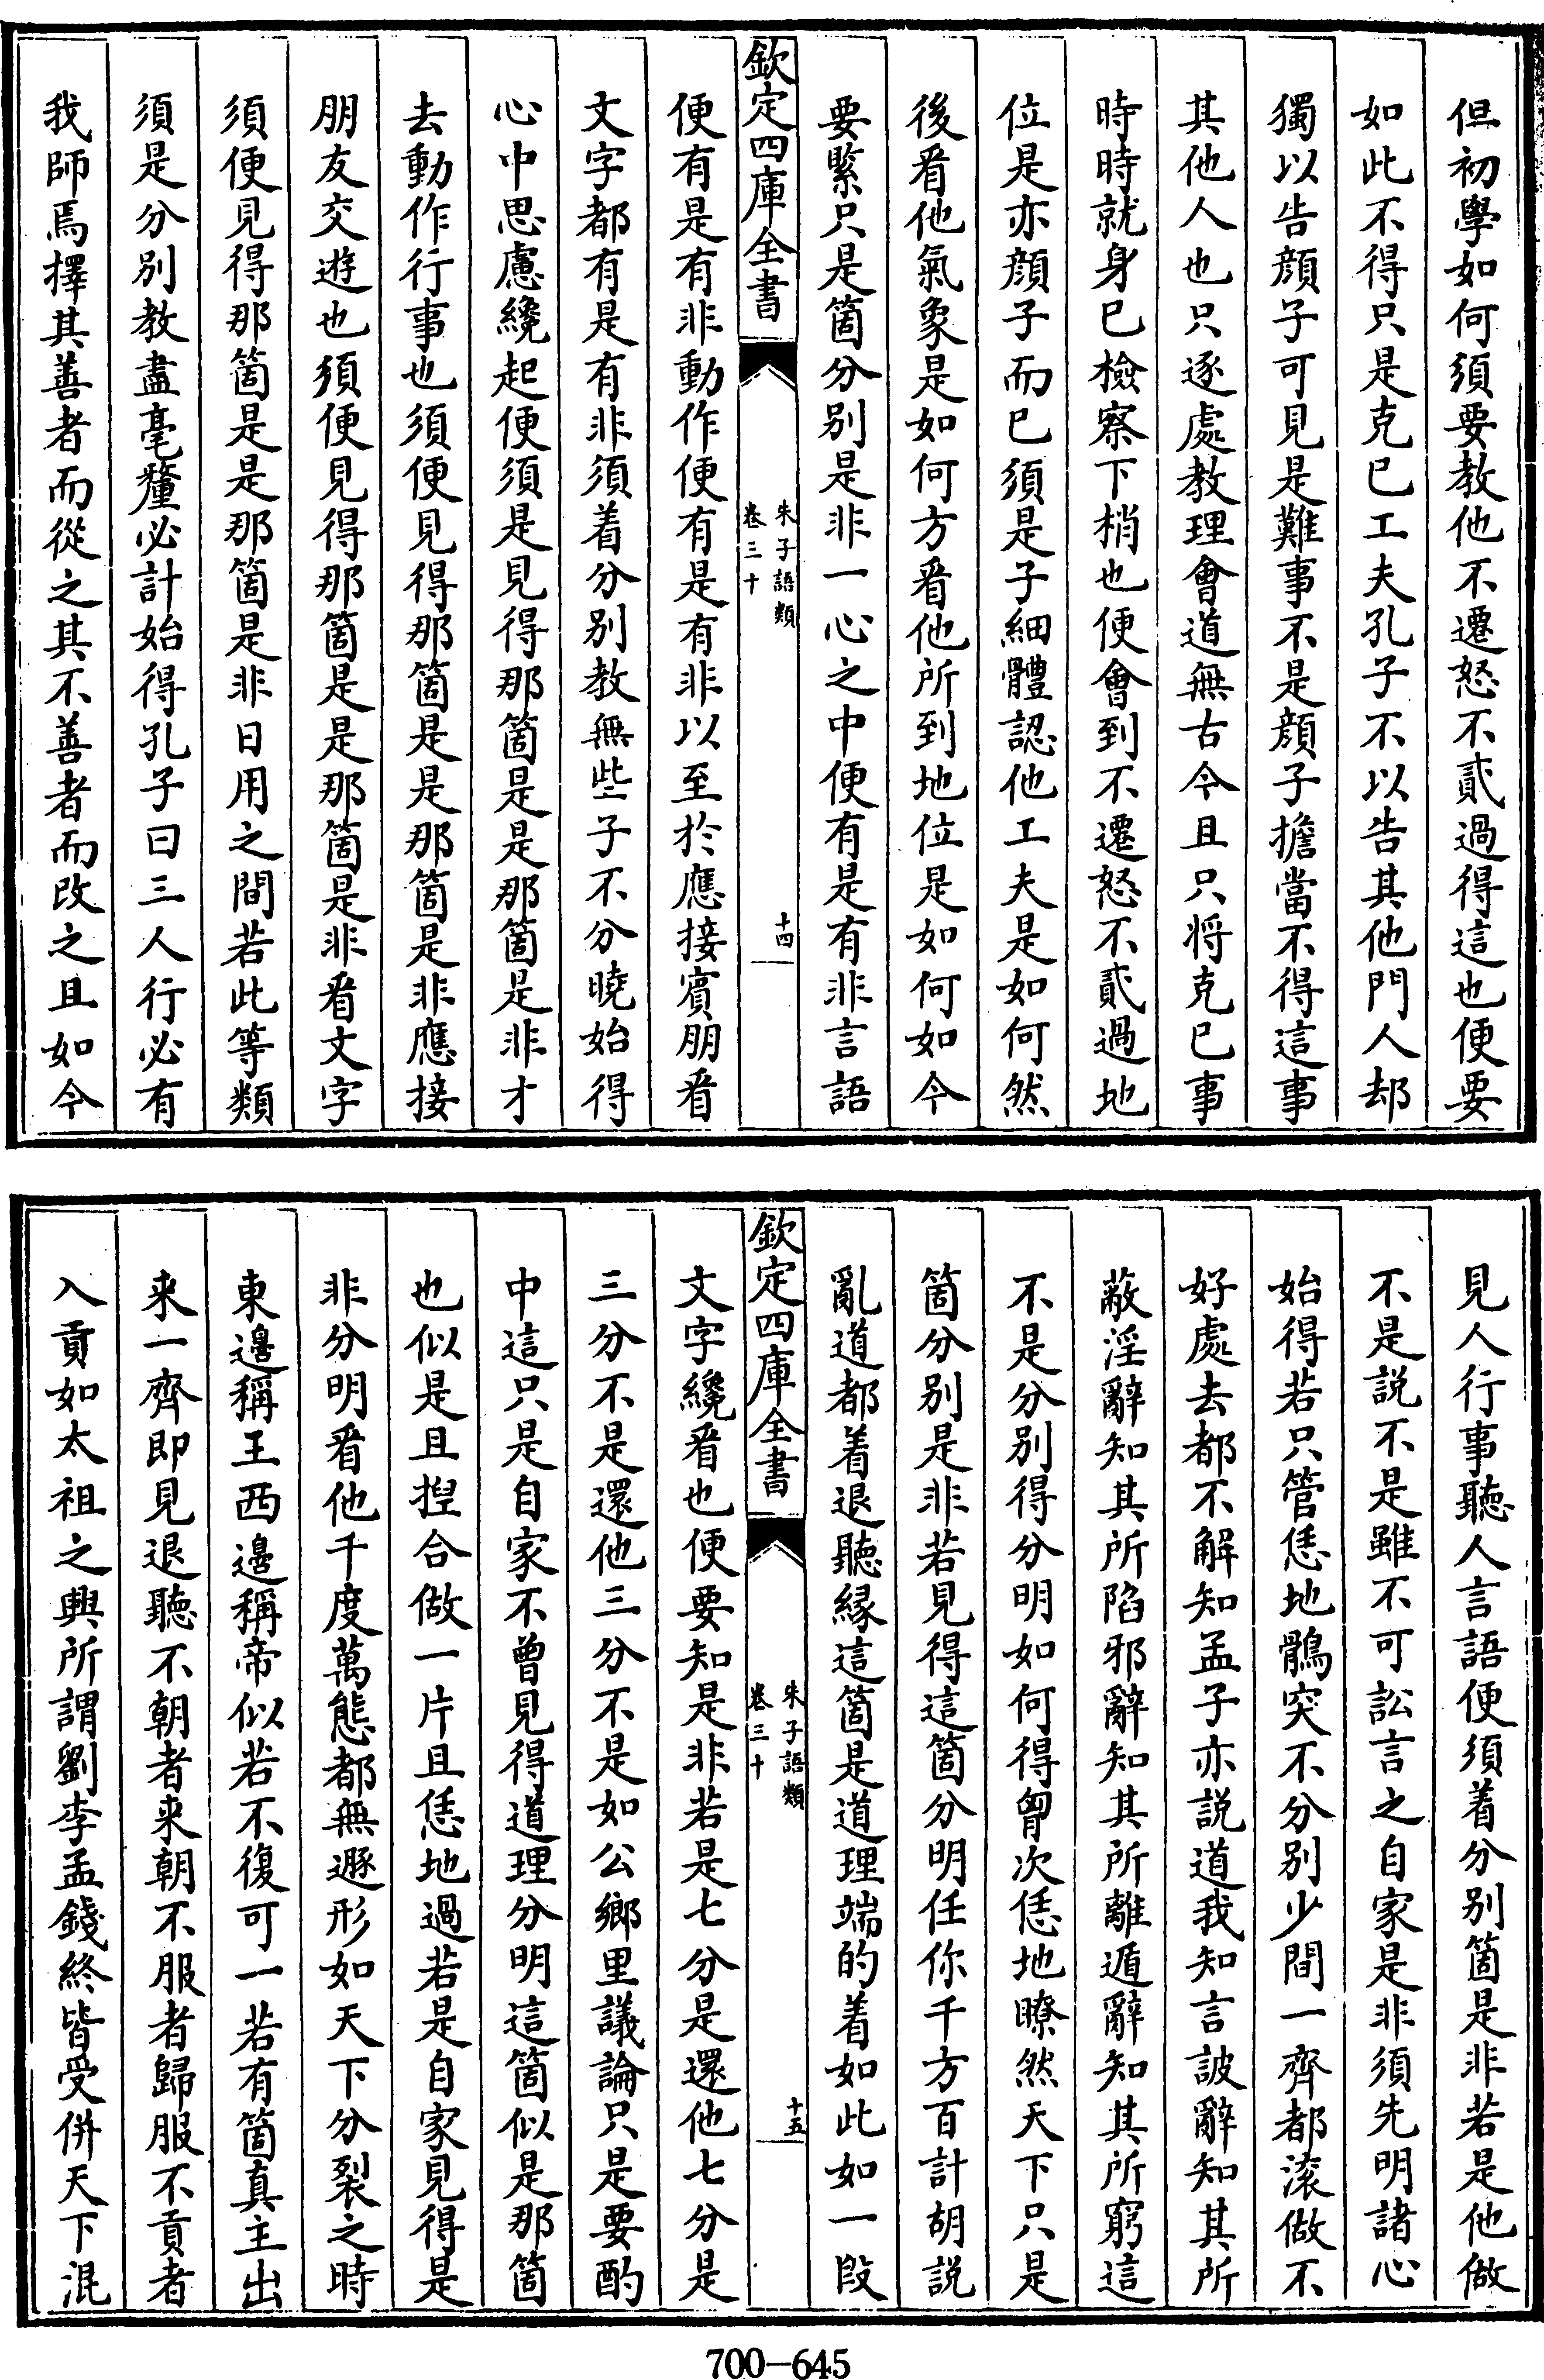 但初學如何須要教他不遷怒不貳過得這也便要
如此不得只是克已工夫孔子不以告其他門人却
獨以告顔子可見是難事不是顔子擔當不得這事
其他人也只逐處教理會道無古今且只將克已事
時時就身已檢察下梢也便會到不遷怒不貳過地
位是亦顔子而已須是子細體認他工夫是如何然
後看他氣象是如何方看他所到地位是如何如今
要緊只是箇分别是非一心之中便有是有非言語
欽定四庫全書
朱子語類
卷三十
十四
便有是有非動作便有是有非以至於應接賓朋看
文字都有是有非須着分别教無些子不分曉始得
心中思慮纔起便須是見得那箇是是那箇是非才
去動作行事也須便見得那箇是是那箇是非應接
朋友交遊也須便見得那箇是是那箇是非看文字
須便見得那箇是是那箇是非日用之間若此等類
須是分别教盡毫釐必計始得孔子曰三人行必有
我師焉擇其善者而從之其不善者而改之且如今
見人行事聽人言語便須着分别箇是非若是他做
不是說不是雖不可訟言之自家是非須先明諸心
始得若只管恁地鶻突不分别少間一齊都滚做不
好處去都不解知孟子亦說道我知言詖辭知其所
蔽淫辭知其所陷邪辭知其所離遁辭知其所窮這
不是分别得分明如何得胷次恁地瞭然天下只是
箇分别是非若見得這箇分明任你千方百計胡說
亂道都着退聽縁這箇是道理端的着如此如一段
欽定四庫全書
朱子語類
卷三十
十五
文字纔看也便要知是非若是七分是還他七分是
三分不是還他三分不是如公鄉里議論只是要酌
中這只是自家不曾見得道理分明這箇似是那箇
也似是且揑合做一片且恁地過若是自家見得是
非分明看他千度萬態都無遯形如天下分裂之時
東邊稱王西邊稱帝似若不復可一若有箇真主出
来一齊即見退聽不朝者来朝不服者歸服不貢者
入貢如太祖之興所謂劉李孟錢終皆受併天下混
700-645